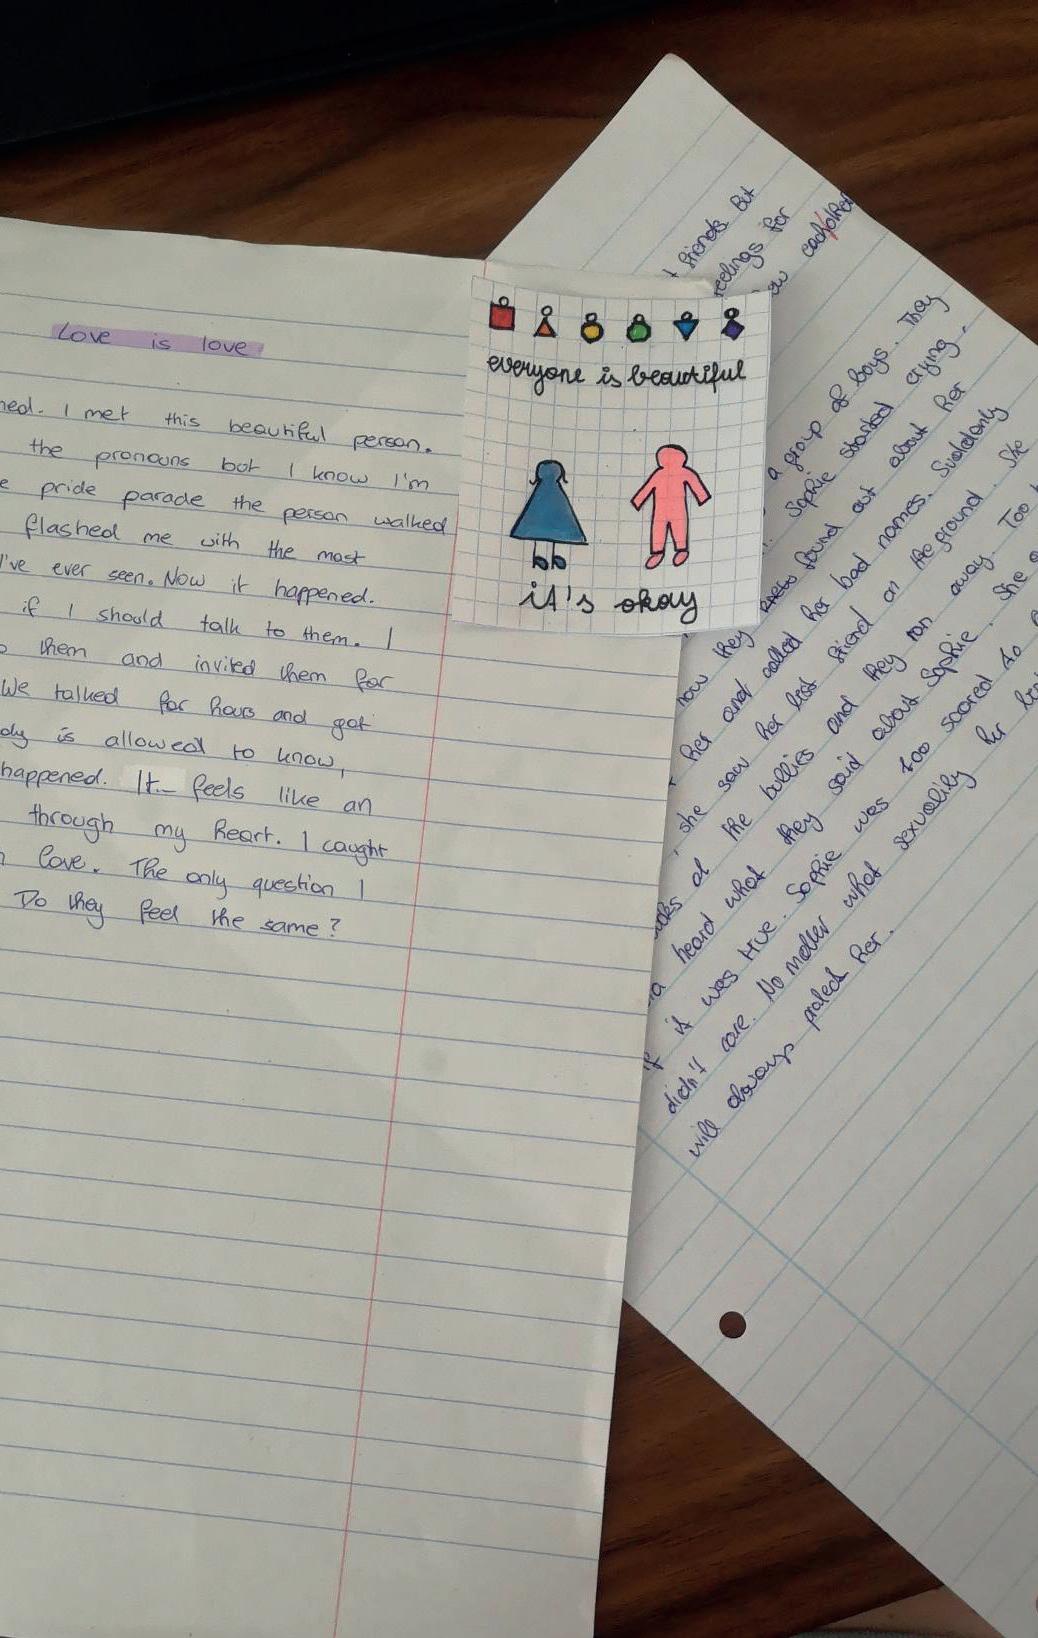 Love is love
ned. I met this beautiful person.
the pronouns but I know I'm
e pride parade the person walked
flashed me with the most
I've ever seen. Now it happened.
if I should talk to them. I
o them and invited them for
We talked for hours and got
ody is allowed to know,
happened. It feels like an
through my heart. I caught
n love. The only question I
Do they feel the same?
everyone is beautiful
it's okay
friends But
feelings for
a group of boys. They
Sophie started crying.
now they found out about her
her and called her bad names. Suddenly
, she saw her best friend on the ground. She
at the bullies and they ran away. Too
heard what they said about Sophie. She
if it was true. Sophie was too scared to
didn't care. No matter what sexuality her
will always protect her.